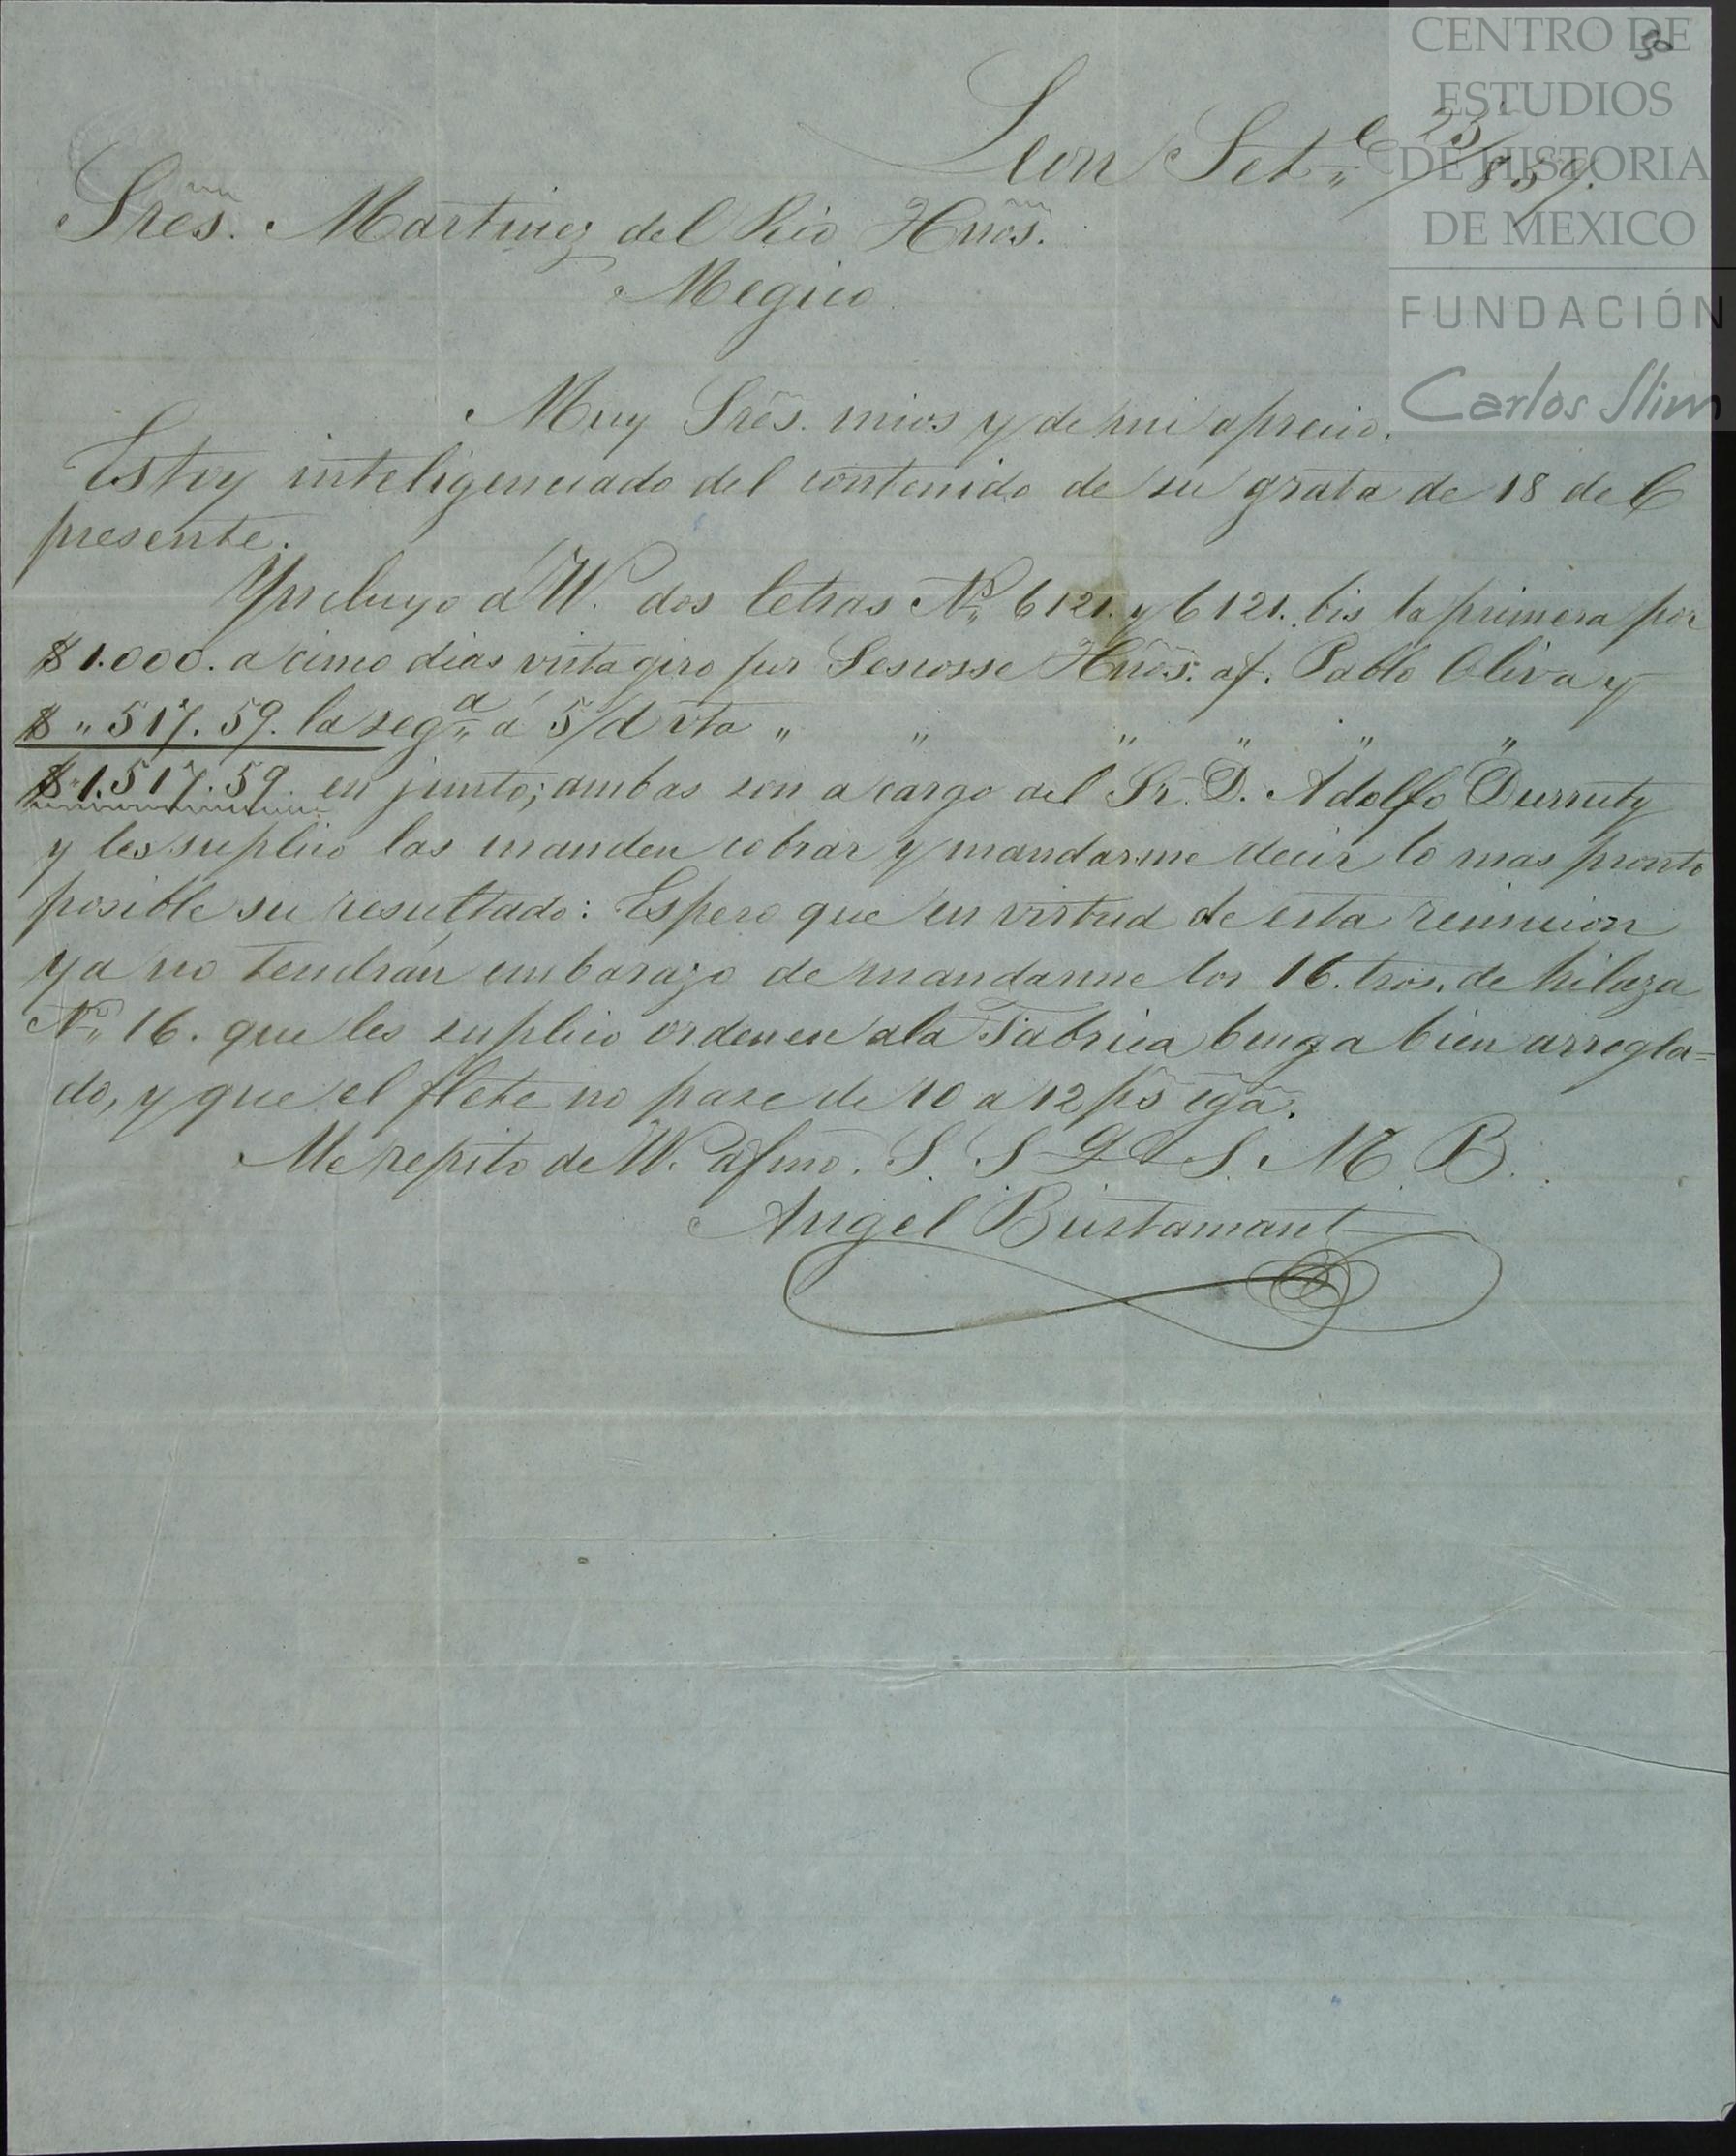 CENTRO DE
ESTUDIOS
DE HISTORIA
DE MEXICO
FUNDACIÓN
Carlos Slim
50
Leon Set.e 23/857.
Sres. Martinez del Rio Hnos.
Megico
Muy Sres. mios y de mi aprecio.
Estoy inteligenciado del contenido de su grata de 18 del
presente.
Yncluyo á VV. dos letras No. 6121. y 6121. bis la primera por
$1.000. a cinco dias vista giro por Hnos. af. Pablo Oliva y
$ " 517. 59. la seg.a á 5/d vta " " " " " "
$ 1.517.59. en junto; ambas son a cargo del Sr. D. Adolfo Durruty
y les suplico las manden cobrar y mandarme decir lo mas pronto
posible su resultado: Espero que en virtud de esta
ya no tendrán embarazo de mandarme los 16. tros. de hilaza
No. 16. que les suplico ordenen ala Fabrica benga bien arregla=
do, y que el flete no pase de 10 a 12 ps cga.
Me repito de VV. afmo. S. S. Q. S. M. B.
Angel Bustamant